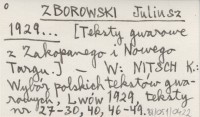 ZBOROWSKI Juliusz
1929... [Teksty gwarowe
z Zakopanego i Nowego
Targu.] - W: NITSCH K.:
Wybór polskich tekstów gwa-
rowych, Lwów 1929, teksty
nr 27-30, 40, 46-49.